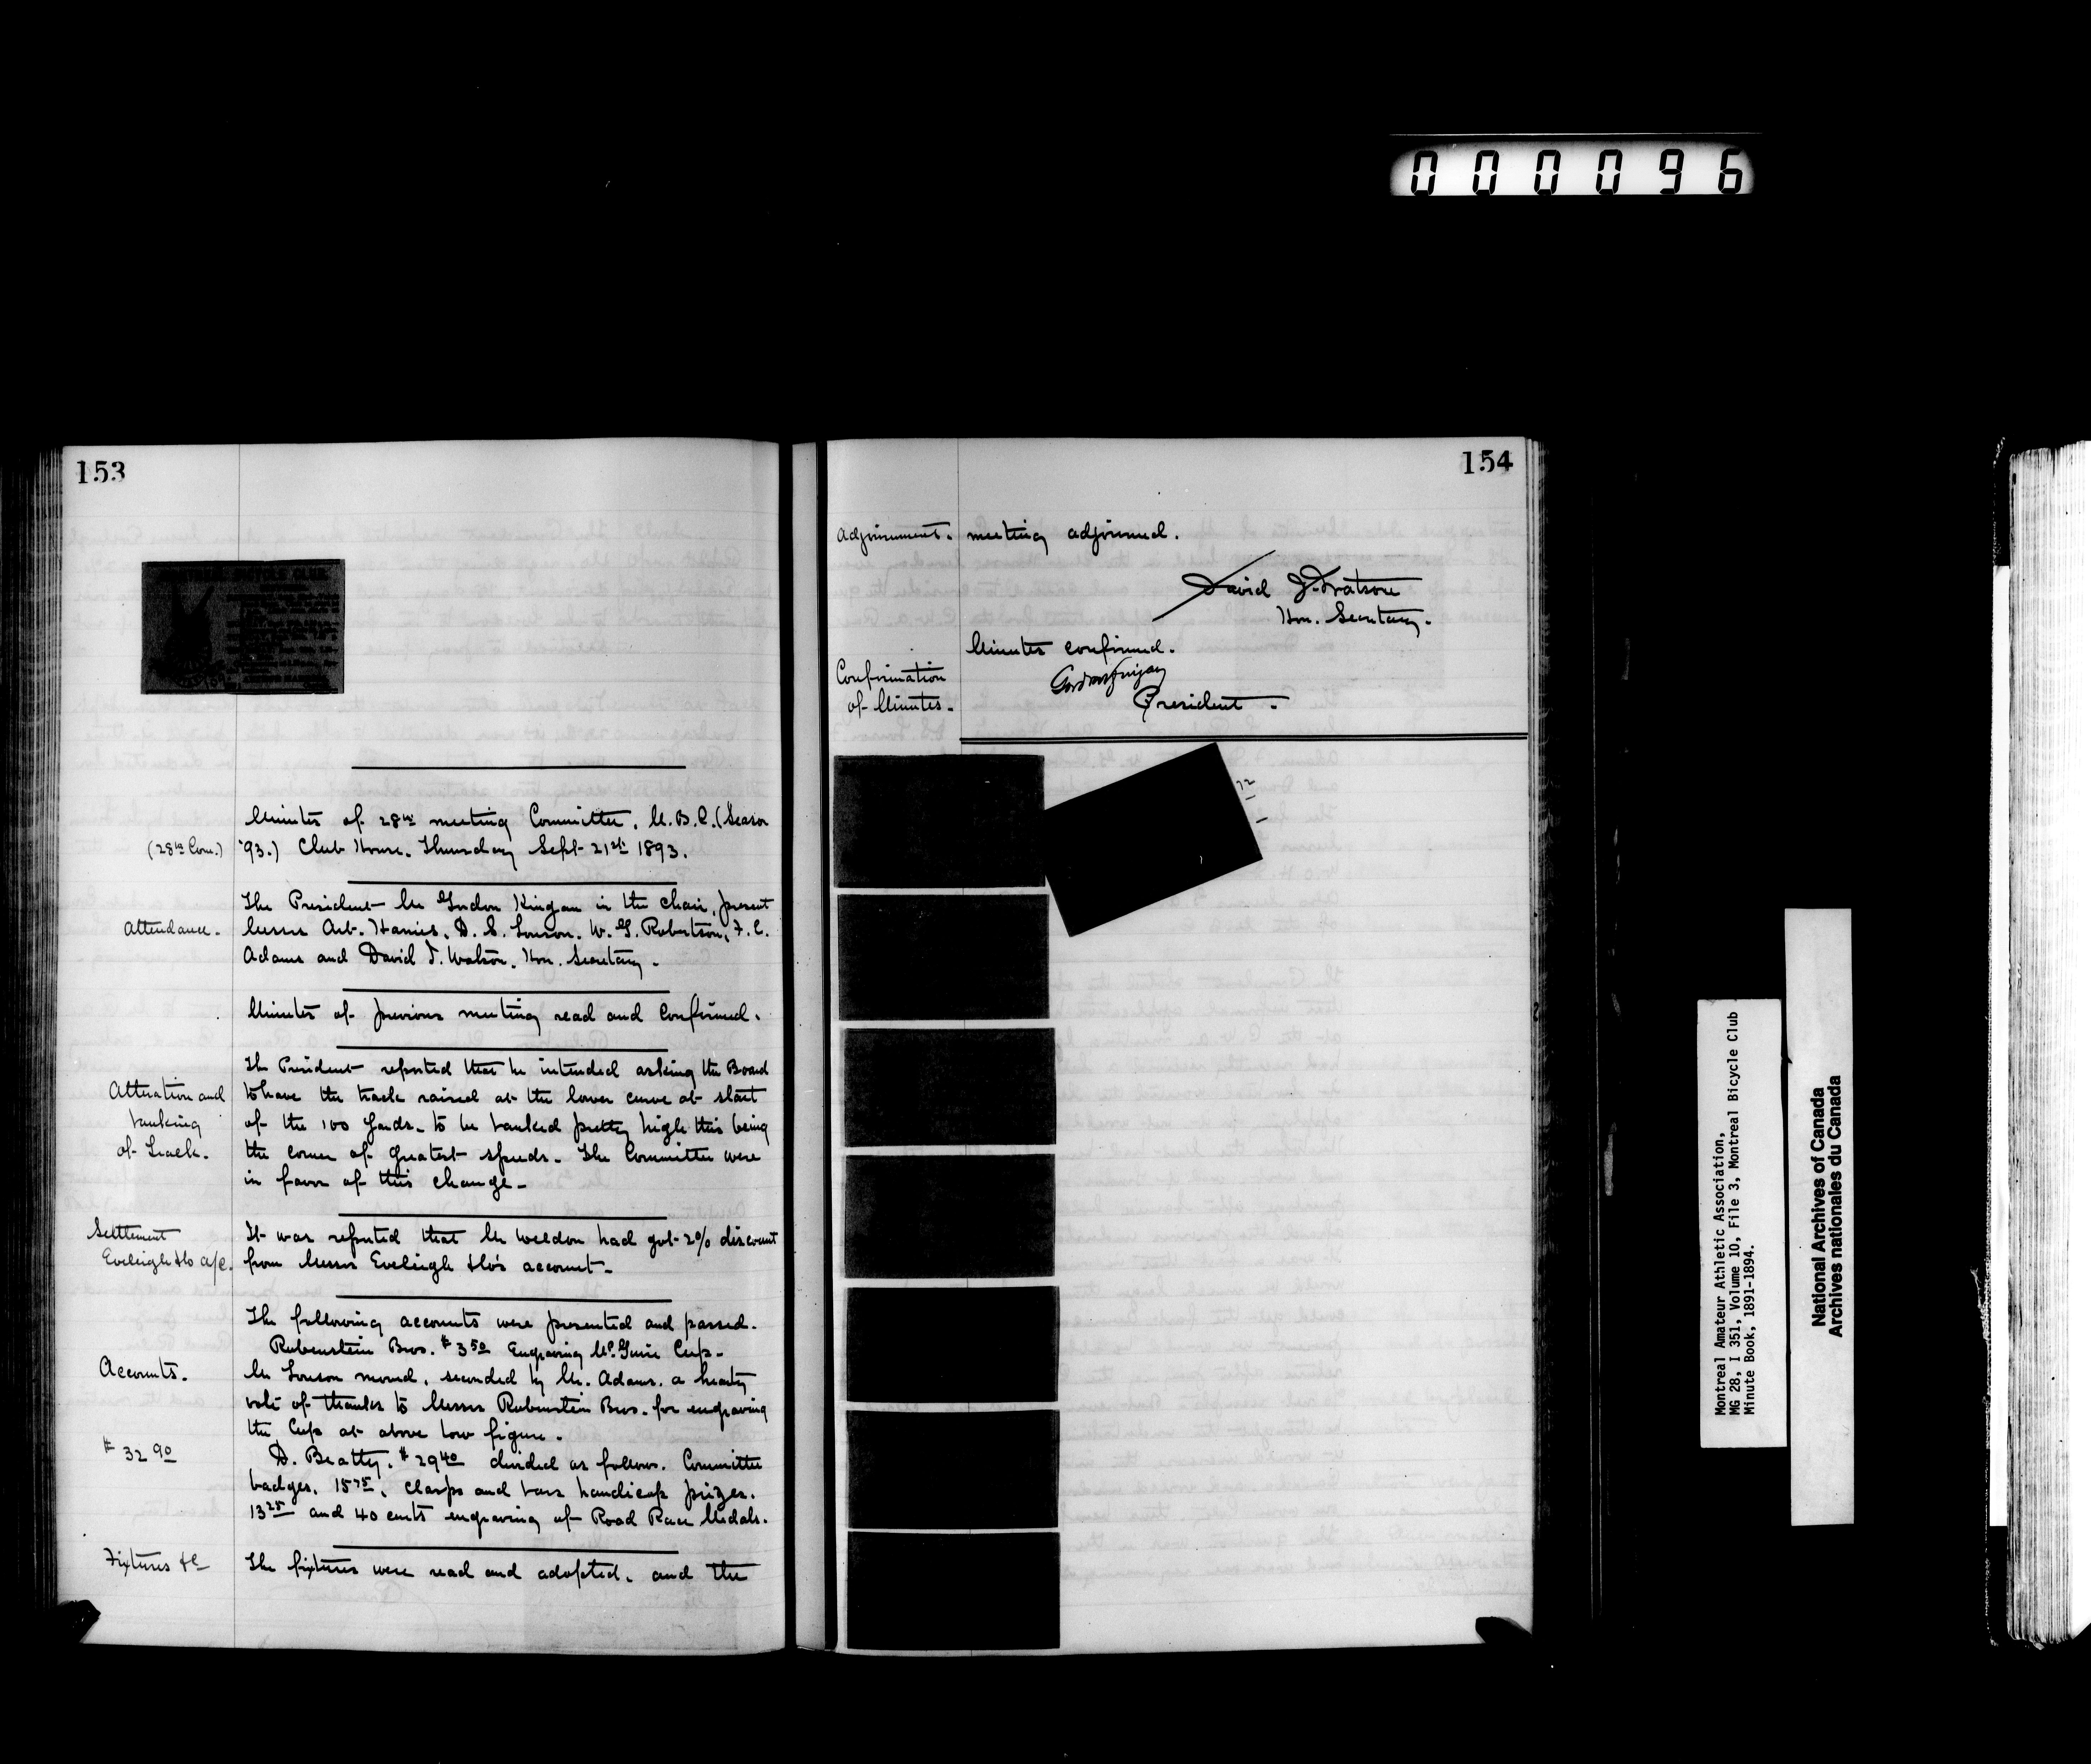 000096
153
Minutes of 28th meeting Committee. M.B.C. (Season
(28th Com.) '93.) Club House. Thursday Sept 21st 1893.
The President Mr Gordon Kingan in the chair, present
Attendance. Messrs Art. Harries, D. S. Louson. W. G. Robertson, F. C.
Adams and David J. Watson. Hon. Secretary.
Minutes of previous meeting read and confirmed.
The President reported that he intended asking the Board
Alteration and to have the track raised at the lower curve at start
banking of the 100 yards. to be banked pretty high this being
of Track. the corner of greatest speeds. The Committee were
in favor of this change.
Settlement It was reported that Mr Weldon had got 2% discount
Eveleigh & Co a/c. from Messrs Eveleigh & Co's account.
The following accounts were presented and passed.
Rubenstein Bros. $3.50 Engraving Cup.
Accounts. Mr Louson moved, seconded by Mr. Adams. a hearty
vote of thanks to Messrs Rubenstein Bros. for engraving
the Cup at above low figure.
$32.90 D. Beatty. $29.40 divided as follows. Committee
badges. 15.75, clasps and bars handicap prizes.
13.25 and 40 cents engraving of Road Race Medals.
Fixtures &c The fixtures were read and adopted. and the
154
Adjournment. meeting adjourned.
David J. Watson
Hon. Secretary.
Minutes confirmed.
Confirmation Gordon Kingan
of Minutes. President.
Montreal Amateur Athletic Association,
MG 28, I 351, Volume 10, File 3, Montreal Bicycle Club
Minute Book, 1891-1894.
National Archives of Canada
Archives nationales du Canada